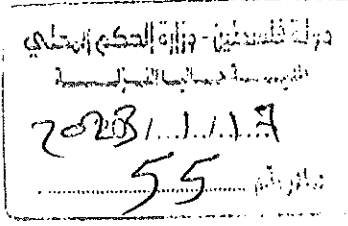 دولة فلسطين - وزارة الحكم المحلي
2023/1/17
صادر رقم 55